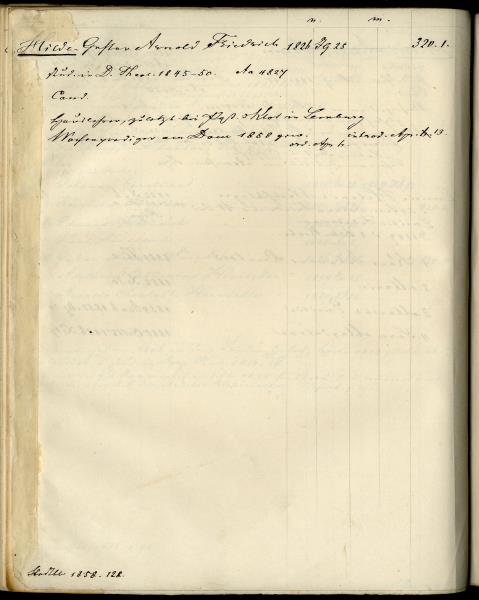 n. m.
Hilde Gustav Arnold Friedrich 1826 Jg 25 320.1.
stud. in D. Theol. 1845-50. Aa 4827
Cand.
Hauslehrer, zuletzt bei Past. in Lemburg
Wochenprediger am Dom 1858 gew. introd. Apr. 13.
ord. Apr. 6.
1858. 128.